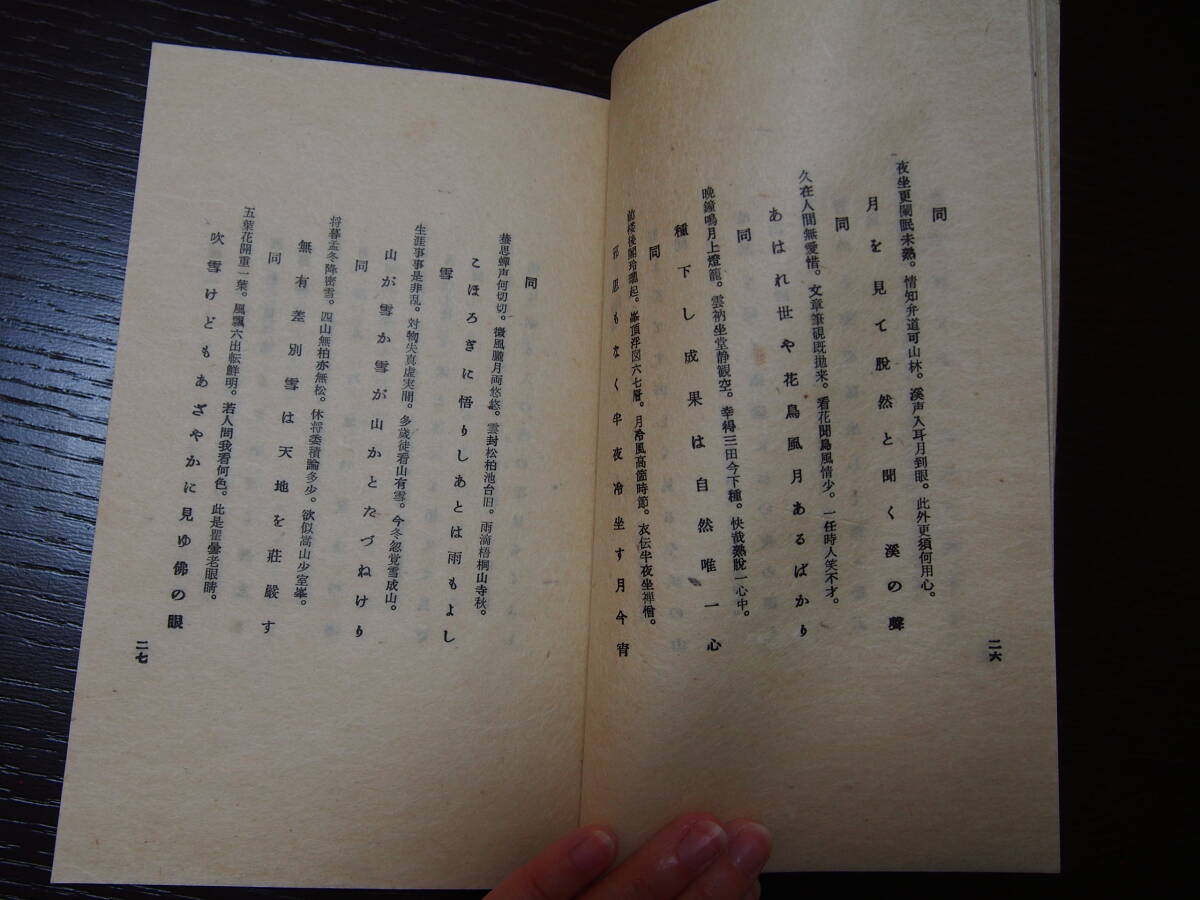 同
夜坐更闌眠未熟。情知弁道可山林。溪声入耳月到眼。此外更須何用心。
月を見て脱然と聞く溪の聲
同
久在人間無愛惜。文章筆硯既抛来。看花聞鳥風情少。一任時人笑不才。
あはれ世や花鳥風月あるばかり
同
晩鐘鳴月上燈籠。雲衲坐堂静観空。幸得三田今下種。快哉熟脱一心中。
種下し成果は自然唯一心
同
前楼後閣玲瓏起。峯頂浮図六七層。月冷風高箇時節。衣伝半夜坐禅僧。
もなく半夜冷坐す月今宵
二六
同
蛬思蟬声何切切。微風朧月両悠悠。雲封松柏池台旧。雨滴梧桐山寺秋。
こほろぎに悟りしあとは雨もよし
雪
生涯事事是非乱。対物失真虚実間。多歳徒看山有雪。今冬忽覚雪成山。
山が雪か雪が山かとたづねけり
同
将暮孟冬降密雪。四山無柏亦無松。休将委積論多少。欲似嵩山少室峯。
無有差別雪は天地を荘厳す
同
五葉花開重一葉。風飄六出転鮮明。若人問我看何色。此是瞿曇老眼睛。
吹雪けどもあざやかに見ゆ佛の眼
二七